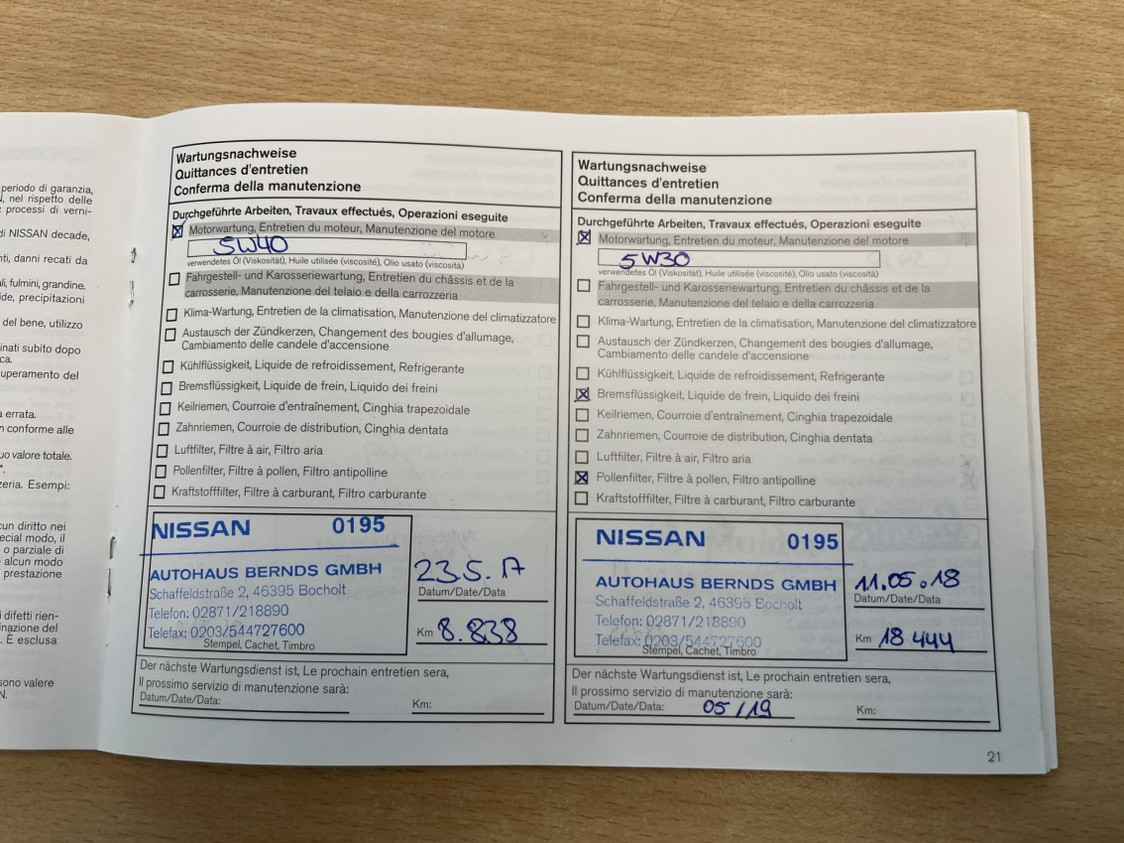 periodo di garanzia,
, nel rispetto delle
processi di verni-
di NISSAN decade,
nti, danni recati da
li, fulmini, grandine.
ide, precipitazioni
del bene, utilizzo
inati subito dopo
ca.
uperamento del
a errata.
n conforme alle
uo valore totale.
zeria. Esempi:
cun diritto nei
ecial modo, il
o parziale di
alcun modo
prestazione
difetti rien-
inazione del
. È esclusa
sono valere
N.
Wartungsnachweise
Quittances d'entretien
Conferma della manutenzione
Durchgeführte Arbeiten, Travaux effectués, Operazioni eseguite
Motorwartung, Entretien du moteur, Manutenzione del motore
5W40
verwendetes Öl (Viskosität), Huile utilisée (viscosité), Olio usato (viscosità)
Fahrgestell- und Karosseriewartung, Entretien du châssis et de la
carrosserie, Manutenzione del telaio e della carrozzeria
Klima-Wartung, Entretien de la climatisation, Manutenzione del climatizzatore
Austausch der Zündkerzen, Changement des bougies d'allumage,
Cambiamento delle candele d'accensione
Kühlflüssigkeit, Liquide de refroidissement, Refrigerante
Bremsflüssigkeit, Liquide de frein, Liquido dei freini
Keilriemen, Courroie d'entraînement, Cinghia trapezoidale
Zahnriemen, Courroie de distribution, Cinghia dentata
Luftfilter, Filtre à air, Filtro aria
Pollenfilter, Filtre à pollen, Filtro antipolline
Kraftstofffilter, Filtre à carburant, Filtro carburante
NISSAN 0195
AUTOHAUS BERNDS GMBH
Schaffeldstraße 2, 46395 Bocholt
Telefon: 02871/218890
Telefax: 0203/544727600
Stempel, Cachet, Timbro
23.5.17
Datum/Date/Data
Km 8.838
Der nächste Wartungsdienst ist, Le prochain entretien sera,
Il prossimo servizio di manutenzione sarà:
Datum/Date/Data:
Km:
Wartungsnachweise
Quittances d'entretien
Conferma della manutenzione
Durchgeführte Arbeiten, Travaux effectués, Operazioni eseguite
Motorwartung, Entretien du moteur, Manutenzione del motore
5W30
verwendetes Öl (Viskosität), Huile utilisée (viscosité), Olio usato (viscosità)
Fahrgestell- und Karosseriewartung, Entretien du châssis et de la
carrosserie, Manutenzione del telaio e della carrozzeria
Klima-Wartung, Entretien de la climatisation, Manutenzione del climatizzatore
Austausch der Zündkerzen, Changement des bougies d'allumage,
Cambiamento delle candele d'accensione
Kühlflüssigkeit, Liquide de refroidissement, Refrigerante
Bremsflüssigkeit, Liquide de frein, Liquido dei freini
Keilriemen, Courroie d'entraînement, Cinghia trapezoidale
Zahnriemen, Courroie de distribution, Cinghia dentata
Luftfilter, Filtre à air, Filtro aria
Pollenfilter, Filtre à pollen, Filtro antipolline
Kraftstofffilter, Filtre à carburant, Filtro carburante
NISSAN 0195
AUTOHAUS BERNDS GMBH
Schaffeldstraße 2, 46395 Bocholt
Telefon: 02871/218890
Telefax: 0203/544727600
Stempel, Cachet, Timbro
11.05.18
Datum/Date/Data
Km 18 444
Der nächste Wartungsdienst ist, Le prochain entretien sera,
Il prossimo servizio di manutenzione sarà:
Datum/Date/Data: 05/19
Km:
21